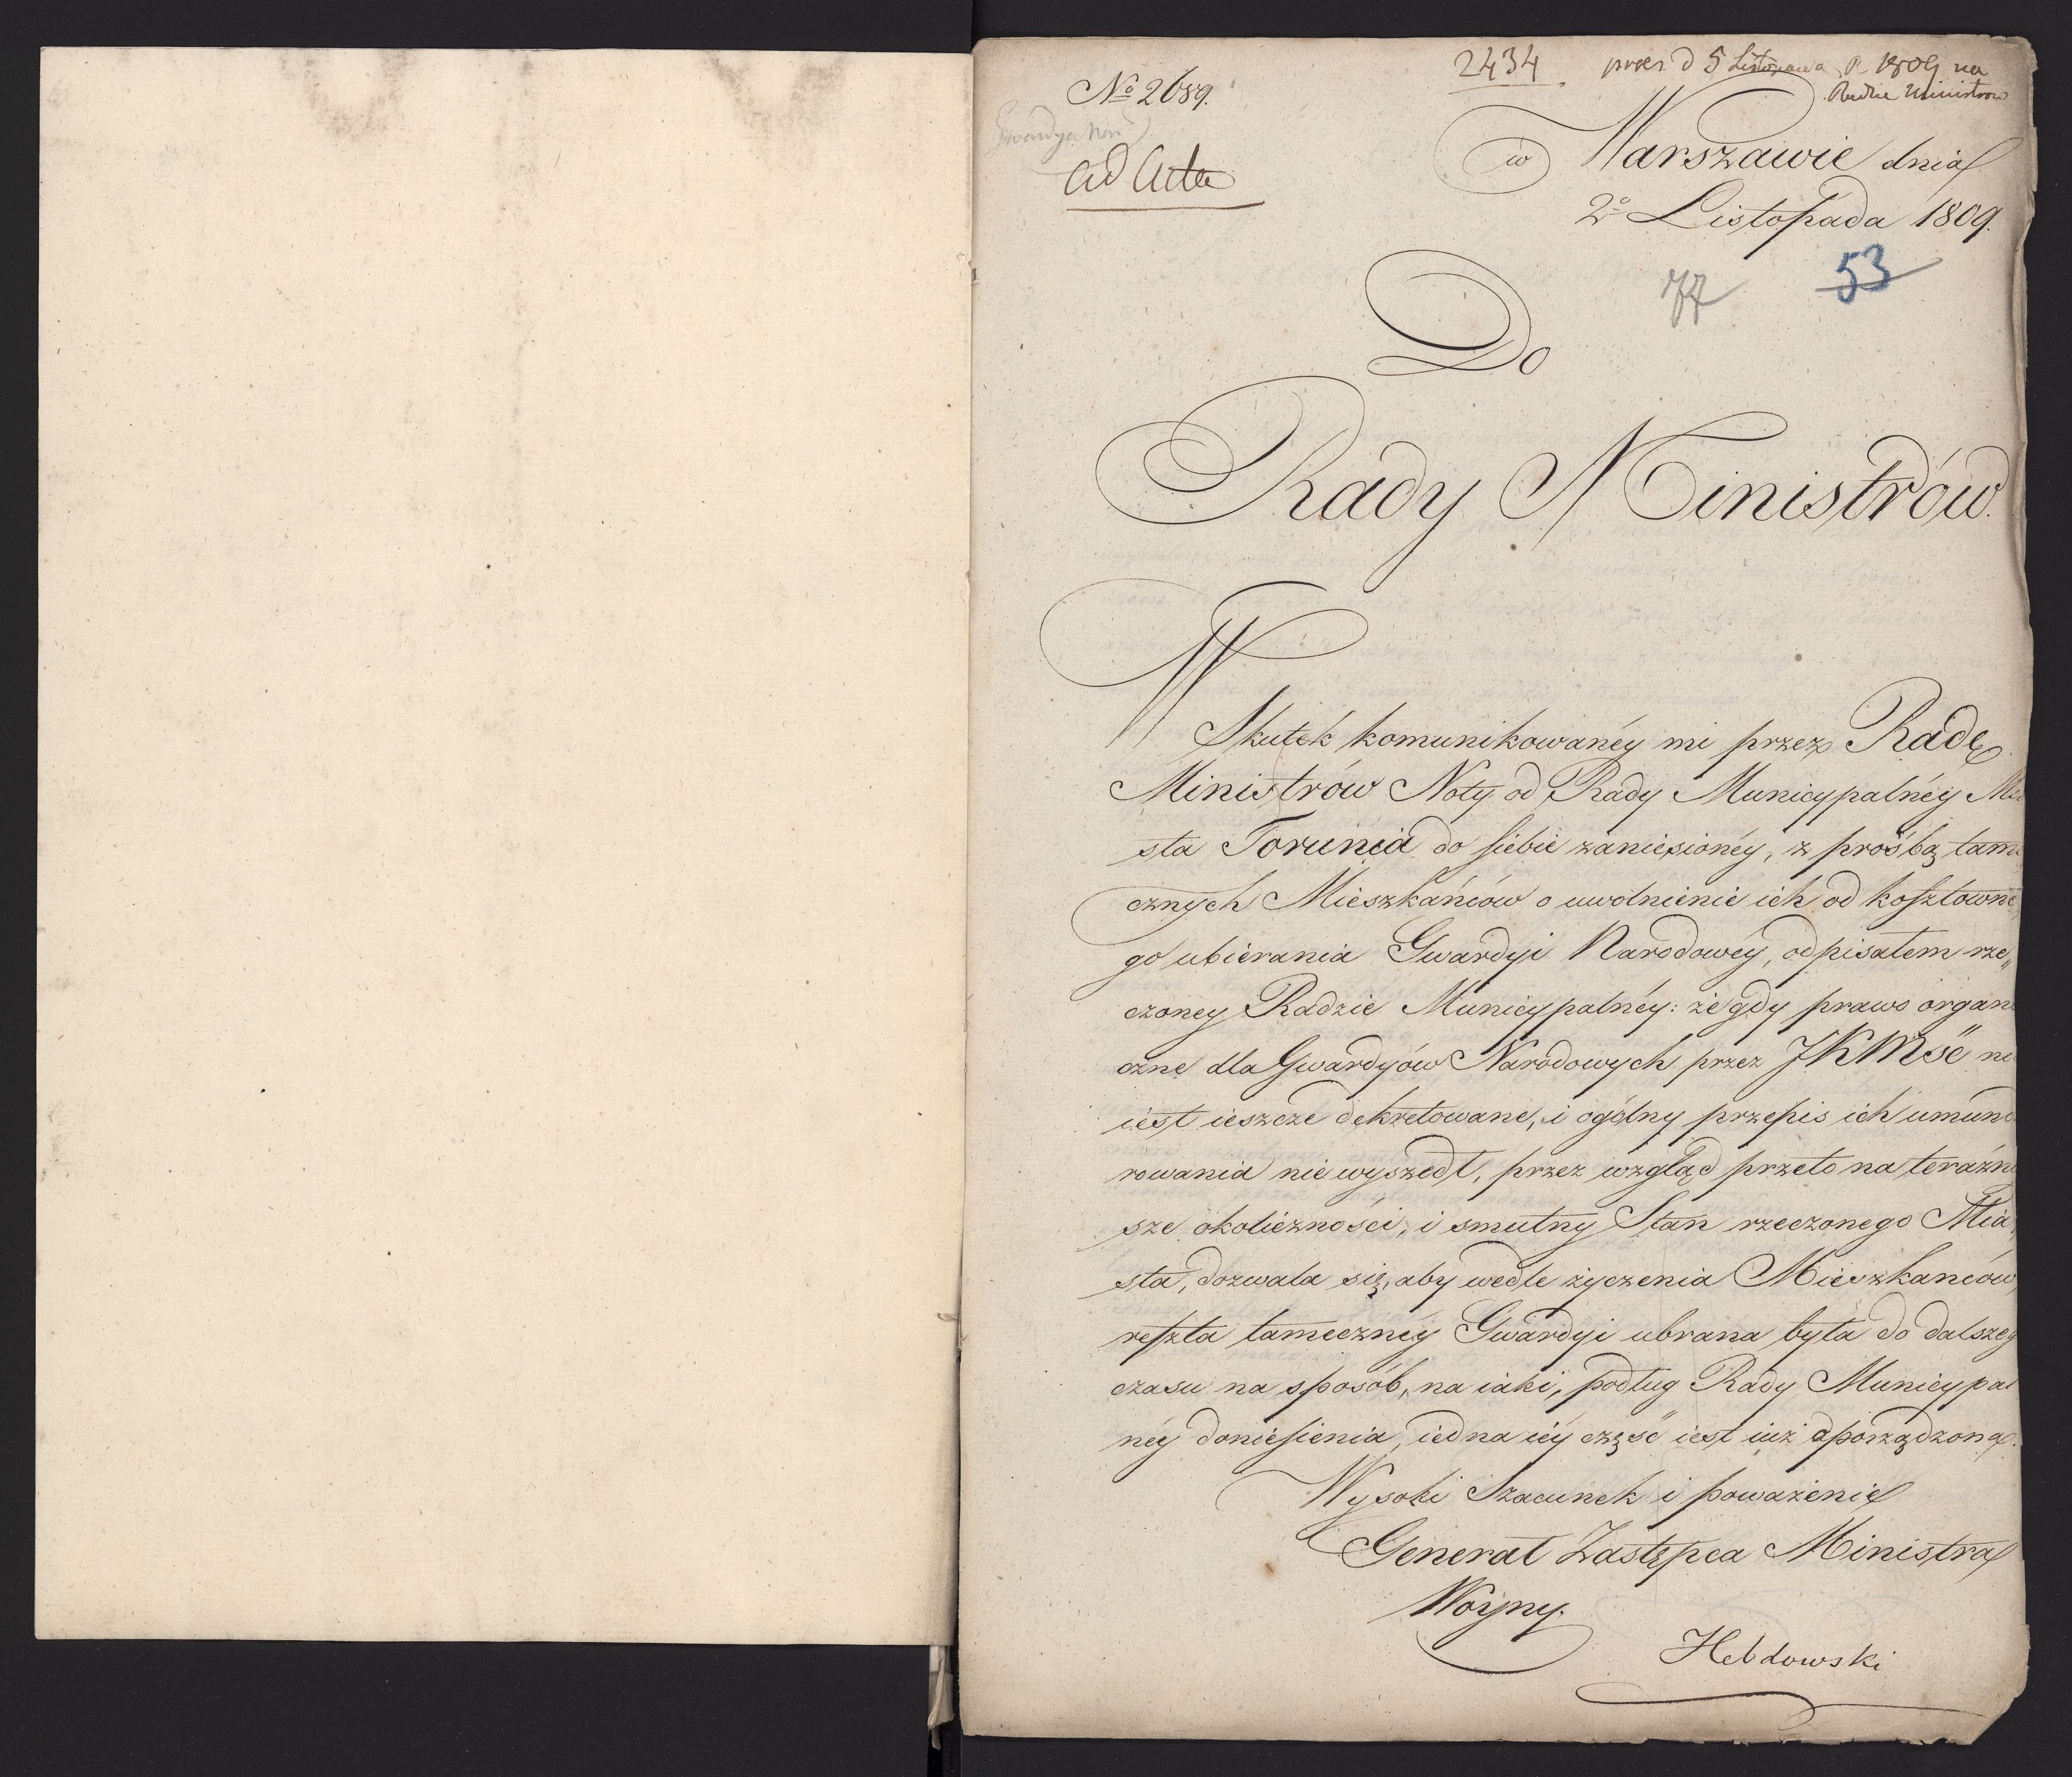 2434 præs d 5 Listopada R 1809 na
Radzie Ministrow
No 2689.
Gwardya Nar
ad Acta
w Warszawie dnia
2o Listopada 1809.
77 53
Do
Rady Ministrów.
W
Skutek komunikowanéy mi przez Radę
Ministrów Noty od Rady Municypalnéy Mia
sta Torunia do siebie zaniesionéy, z prośbą tame
cznych Mieszkańców o uwolnienie ich od kosztowne
go ubierania Gwardyi Narodowéy, odpisałem rze„
czoney Radzie Municypalnéy: że gdy prawo organi
czne dla Gwardyów Narodowych przez JKMść nie
iest ieszcze dekretowane, i ogólny przepis ich umundu
rowania nie wyszedł, przez wzgląd przeto na teraźni
sze okoliczności, i smutny Stan rzeczonego Mia
sta, dozwala się, aby wedle życzenia Mieszkanców,
reszta tamecznéy Gwardyi ubrana była do dalszeg
czasu na sposób, na iaki, podług Rady Municypal
néy doniesienia, iedna iéy część iest iuż sporządzona.
Wysoki Szacunek i poważenie
Generał Zastępca Ministra
Woyny.
Hebdowski